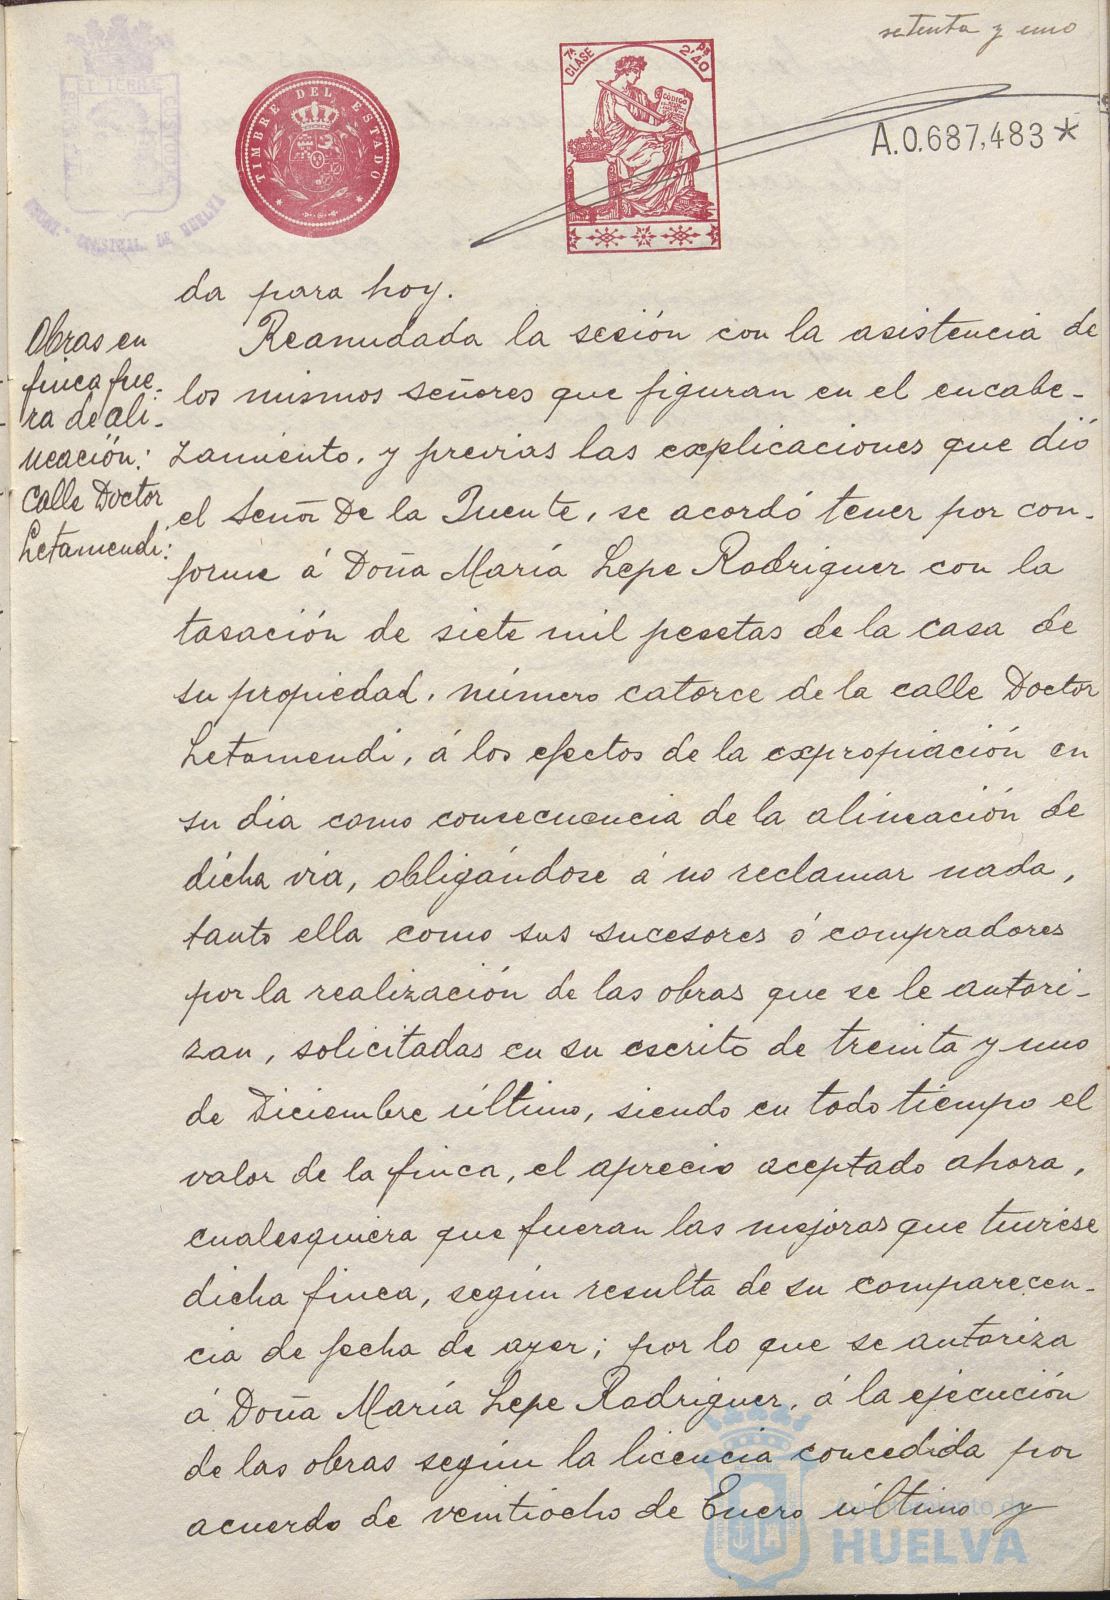 setenta y uno
TIMBRE DEL ESTADO
7ª CLASE
2'40 Ps
CÓDIGO
A.0.687,483*
da para hoy.
Obras en
finca fue-
ra de ali-
neación:
calle Doctor
Letamendi:
Reanudada la sesión con la asistencia de
los mismos señores que figuran en el encabe-
zamiento, y previas las explicaciones que dió
el Señor De la Fuente, se acordó tener por con-
forme á Doña María Lepe Rodriguez con la
tasación de siete mil pesetas de la casa de
su propiedad, número catorce de la calle Doctor
Letamendi, á los efectos de la expropiación en
su dia como consecuencia de la alineación de
dicha vía, obligándose á no reclamar nada,
tanto ella como sus sucesores ó compradores
por la realización de las obras que se le autori-
zan, solicitadas en su escrito de treinta y uno
de Diciembre último, siendo en todo tiempo el
valor de la finca, el aprecio aceptado ahora,
cualesquiera que fueran las mejoras que tuviese
dicha finca, según resulta de su comparecen-
cia de fecha de ayer; por lo que se autoriza
á Doña María Lepe Rodriguez, á la ejecución
de las obras según la licencia concedida por
acuerdo de veintiocho de Enero último y
Ayuntamiento de
HUELVA